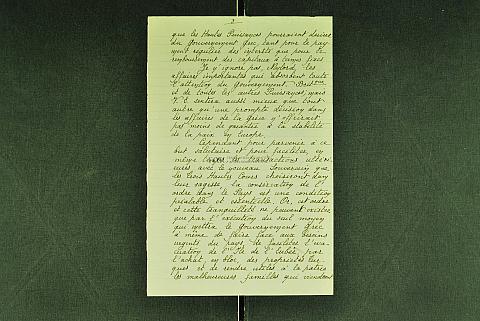 3
que les Hautes Puissances pourraient désirer
du Gouvernement Grec, tant pour le pay
ment régulier des intérêts que pour le
remboursement des capitaux à termes fixes
Je n'ignore pas, Mylord, les
affaires importantes qui absorbent toute
l'attention du Gouvernement
et de toutes les autres Puissances, mais
V. E. sentira aussi mieux que tout
autre qu'une prompte décision dans
les affaires de la Grèce n'offrirait
pas moins de garantie à la stabilité
de la paix en Europe.
Cependant pour parvenir à ce
but salutaire et pour faciliter, en
même les transactions ultéri
eures avec le nouveau Souverain que
les trois Hautes Cours choisiront dans
leur sagesse, la conservation de l'
ordre dans le Pays est une condition
préalable et essentielle. Or, cet ordre
et cette tranquillité ne peuvent exister
que par l'exécution du seul moyen
qui mettra le Gouvernement Grec
à même de faire face aux besoins
urgents du pays, de faciliter l'éva
cuation de l'Ile de l'Eubée, par
l'achat, en bloc, des propriétés tur
ques et de rendre utiles à la patrie
les malheureuses familles qui viendront